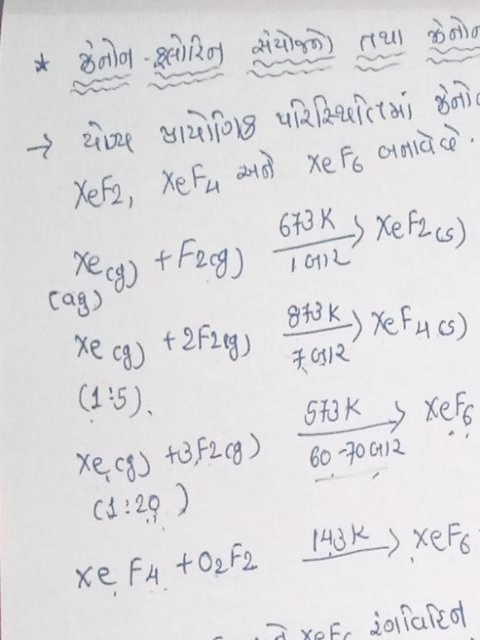 * ઝેનોન - ફ્લોરિન સંયોજનો તથા ઝેનોન
→ યોગ્ય પ્રાયોગિક પરિસ્થિતિમાં
XeF2, XeF4 અને XeF6 બનાવે છે.
Xe(g) + F2(g) 673K / 1 બાર → XeF2(s)
(ag)
Xe(g) + 2F2(g) 873K / 7 બાર → XeF4(s)
(1:5).
Xe(g) + 3F2(g) 573K / 60-70બાર → XeF6
(1:20)
XeF4 + O2F2 143K → XeF6
XeF6 રંગવિહિન